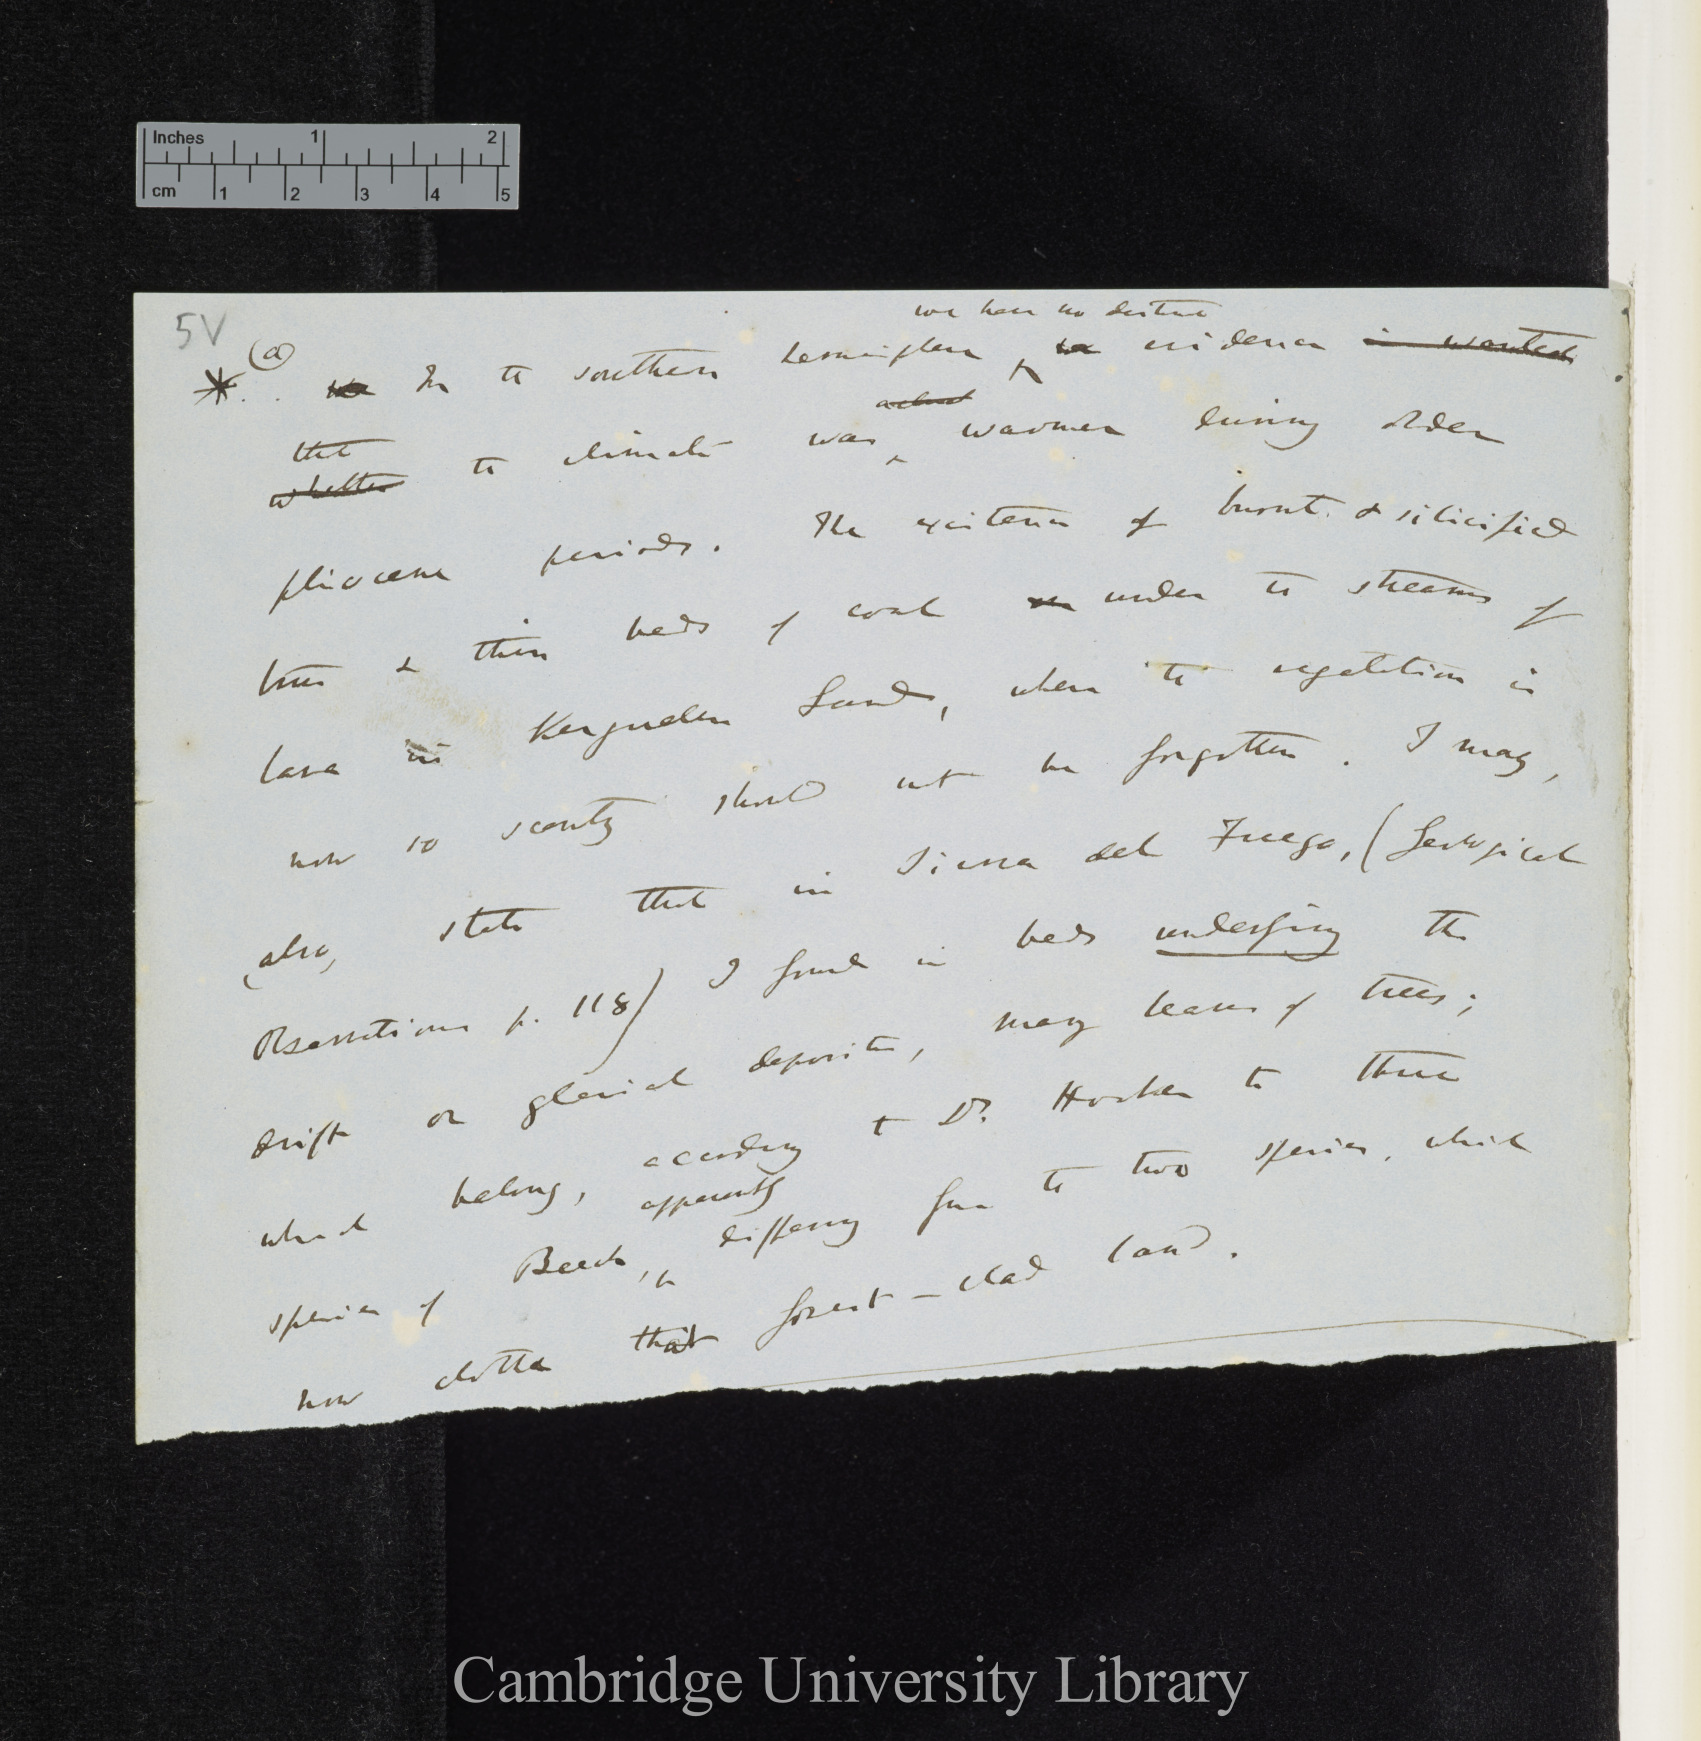 Inches 1 2
cm 1 2 3 4 5
5V
(a)
we have no distinct
* In the southern hemisphere evidence is wanted
actual
that
whether the climate was warmer during older
pliocene periods. The existence of burnt & silicified
trees & thin beds of coal under the streams of
lava in Kerguelen Land, where the vegetation is
now so scanty should not be forgotten. I may,
also, state that in Tierra del Fuego, (Geological
Observations p. 118) I found in beds underlying the
drift or glacial deposits, many leaves of trees;
which belong, according to Dr. Hooker to three
apparently
species of Beech, differing from the two species, which
now clothe that forest-clad land.
Cambridge University Library